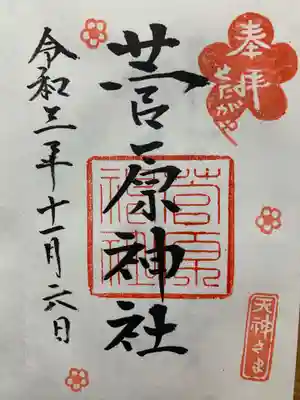 奉拝
せたがや
菅原神社
菅原神社
天神さま
令和三年十一月六日